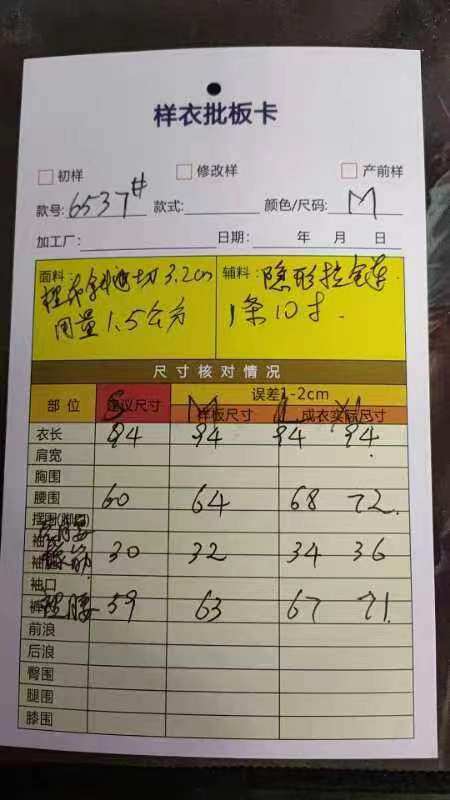 样衣批板卡
初样 修改样 产前样
款号: 6537# 款式: 颜色/尺码: M
加工厂: 日期: 年 月 日
面料: 切3.2cm
用量1.5公斤
辅料: 隐形拉链
1条10寸.
尺寸核对情况
部位 建议尺寸 S 误差1-2cm
样板尺寸 M 成衣实际尺寸 L XL
衣长 94 94 94 94
肩宽
胸围
腰围 60 64 68 72
摆围(脚围)
30 32 34 36
袖口
裡腰 59 63 67 71
前浪
后浪
臀围
腿围
膝围